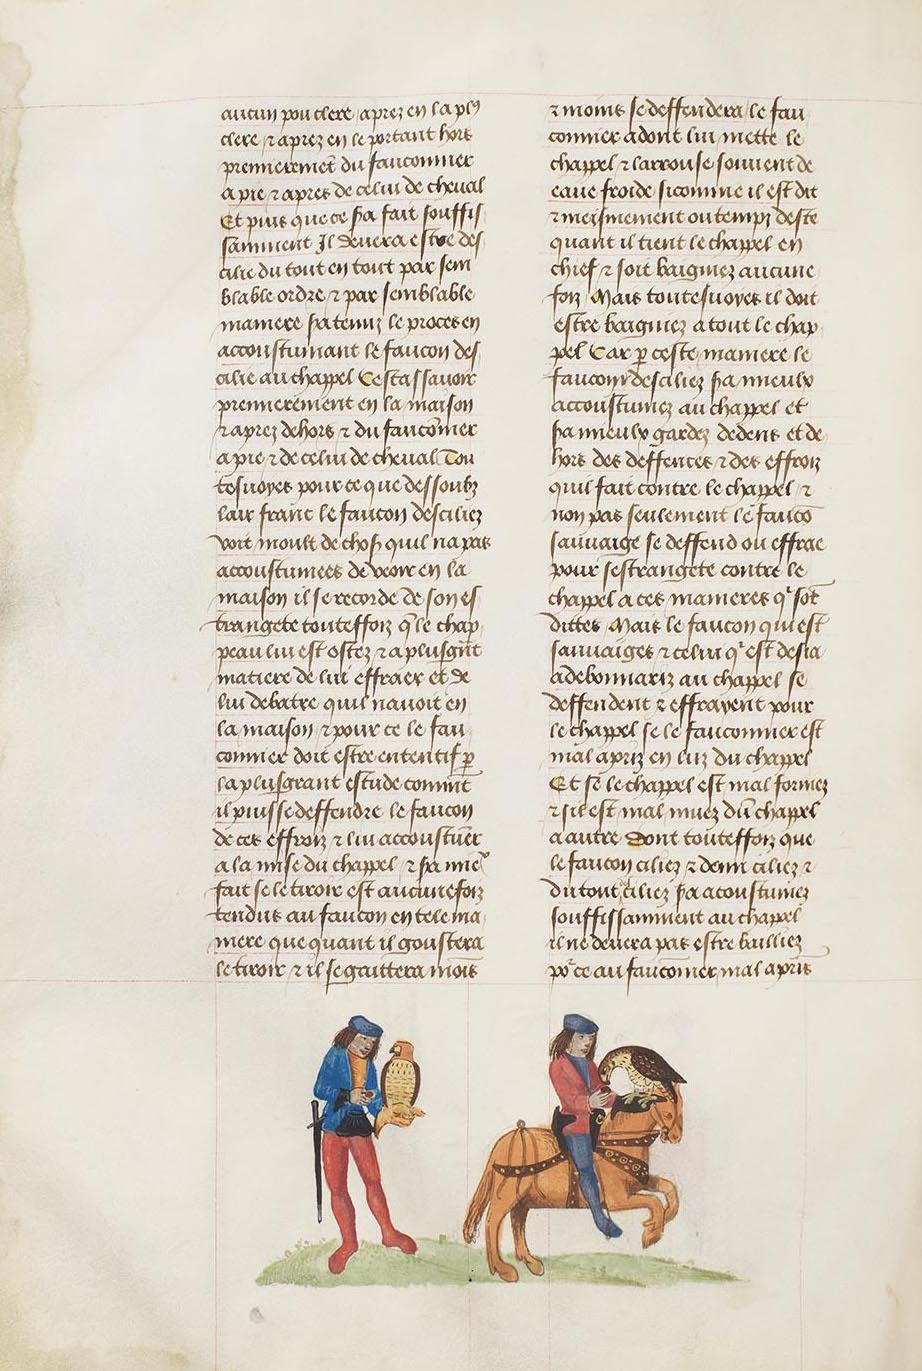 aucun pou clere aprez en la pl9
clere ⁊ aprez en le portant hors
premierement du fauconnier
a pie ⁊ apres de celui de cheval
Et puis que ce sra fait souffis
samment Il devera estre des
cilie du tout en tout par sem
blable ordre ⁊ par semblable
maniere sra tenuz le proces en
acoustumant le faucon des
cilie au chappel Cestassavoir
premierement en la maison
⁊ aprez dehors ⁊ du fauconier
a pie ⁊ de celui de cheval Tou
tesvoyes pour ce que dessoubz
lair franc le faucon desciliez
voit moult de choses quil na pas
accoustumees de veoir en la
maison il se recorde de son es
trangete touteffoiz que le chap
peau lui est ostez ⁊ a plusgrant
matiere de lui effraer et de
lui debatre quil navoit en
la maison ⁊ pour ce le fau
connier doit estre ententif par
la plusgrant estude comment
il puisse deffendre le faucon
de ces effroiz ⁊ lui accoustumer
a la mise du chappel ⁊ sra mie
fait se le tiroir est aucunefoiz
tendus au faucon en tele ma
niere que quant il goustera
le tiroir ⁊ il se gaittera moins
⁊ moins se deffendera le fau
connier adont lui mette le
chappel ⁊ larrouse souvent de
eaue froide sicomme il est dit
⁊ meismement ou temps deste
quant il tient le chappel en
chief ⁊ soit baigniez aucune
foiz Mais toutesvoyes il doit
estre baigniez a tout le chap
pel Car par ceste maniere le
faucon desciliez sra mieulx
accoustumez au chappel et
sra mieulx gardez dedens et de
hors des deffences ⁊ des effroiz
quil fait contre le chappel ⁊
non pas seulement le faucon
sauvaige se deffend ou effrae
pour sestrangete contre le
chappel a ces manieres qui sont
dittes Mais le faucon qui est
sauvaiges ⁊ celui qui est desia
adebonnariz au chappel se
deffendent ⁊ effrayent pour
le chappel se le fauconnier est
mal apriz en luz du chappel
Et se le chappel est mal formez
⁊ sil est mal muez dun chappel
a autre Dont touteffoiz que
le faucon ciliez ⁊ demi ciliez ⁊
du tout ciliez sra acoustumez
souffissamment au chappel
il ne devera pas estre bailliez
pour ce au fauconnier mal apris